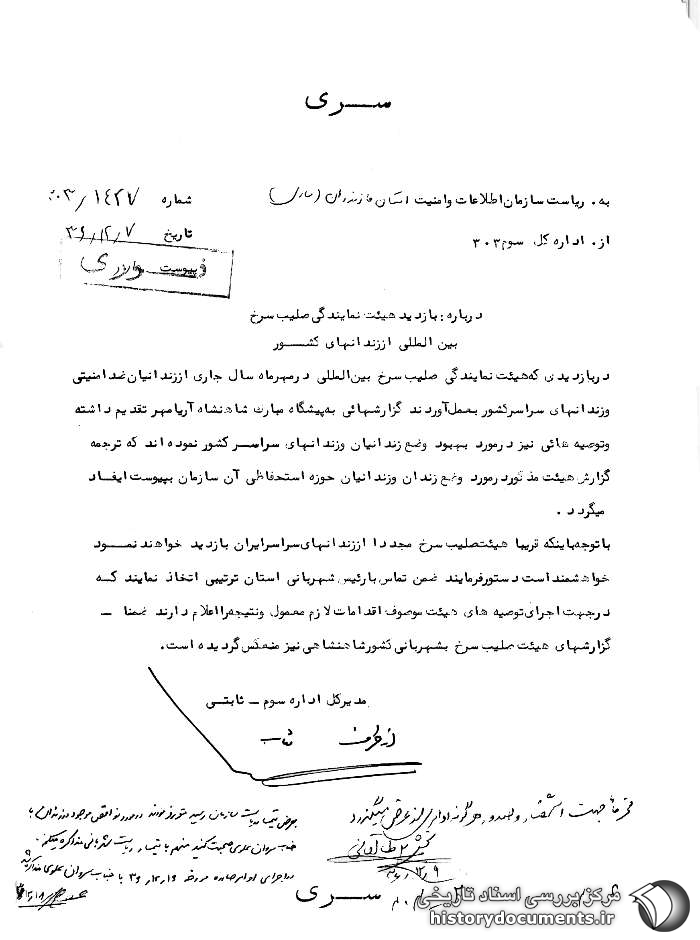 سری
به . ریاست سازمان اطلاعات و امنیت استان مازندران (ساری)
شماره ۱۴۲۷/۳۰۳
از . اداره کل سوم ۳۰۳
تاریخ ۳۶/۱۲/۷
پیوست دارد
درباره : بازدید هیئت نمایندگی صلیب سرخ
بین المللی از زندانهای کشور
در بازدیدی که هیئت نمایندگی صلیب سرخ بین المللی در مهرماه سال جاری از زندانیان ضد امنیتی
و زندانهای سراسر کشور بعمل آوردند گزارشهائی به پیشگاه مبارک شاهنشاه آریامهر تقدیم داشته
و توصیه هائی نیز در مورد بهبود وضع زندانیان و زندانهای سراسر کشور نموده اند که ترجمه
گزارش هیئت مذکور در مورد وضع زندان و زندانیان حوزه استحفاظی آن سازمان بپیوست ایفاد
میگردد .
با توجه باینکه قریبا هیئت صلیب سرخ مجددا از زندانهای سراسر ایران بازدید خواهند نمود
خواهشمند است دستور فرمایند ضمن تماس با رئیس شهربانی استان ترتیبی اتخاذ نمایند که
در جهت اجرای توصیه های هیئت موصوف اقدامات لازم معمول و نتیجه را اعلام دارند ضمنا –
گزارشهای هیئت صلیب سرخ بشهربانی کشور شاهنشاهی نیز منعکس گردیده است .
مدیرکل اداره سوم – ثابتی
از طرف
جهت استحضار و هرگونه اوامر از عرض میگذرد
بعرض ریاست سازمان رسید
صحبت کنید منهم با ریاست شهربانی مذاکره میکنم
سری
مرکز بررسی اسناد تاریخی
historydocuments.ir